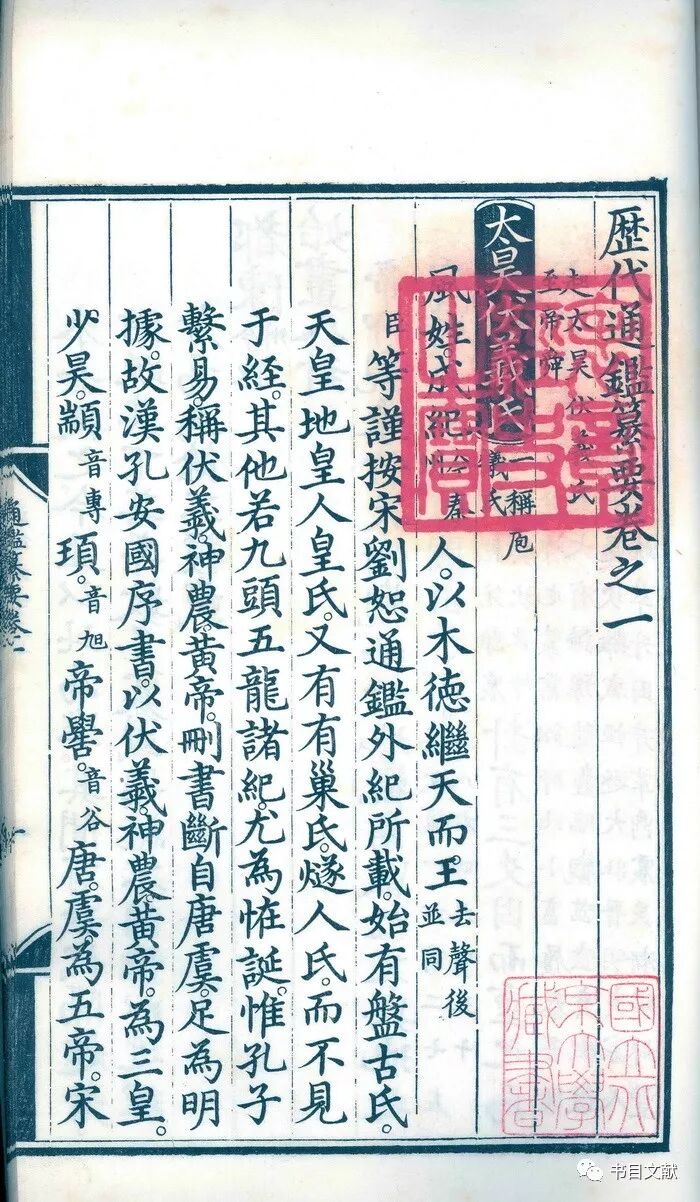 歷代通鑑纂要卷之一
起太昊伏羲氏
至帝舜
太昊伏羲氏一稱庖
羲氏
風姓。成紀今秦
州人。以木德繼天而。王去聲後
並同
臣等謹按宋劉恕通鑑外紀所載。始有盤古氏。
天皇地皇人皇氏。又有有巢氏。燧人氏。而不見
于經。其他若九頭五龍諸紀。尤為恠誕。惟孔子
繫易。稱伏羲。神農。黃帝。刪書斷自唐虞。足為明
據。故漢孔安國序書。以伏羲。神農。黃帝。為三皇。
少昊。顓音專頊。音旭帝嚳。音谷唐。虞。為五帝。宋
通鑑纂要卷一
國立北
京大學
藏書
书目文献